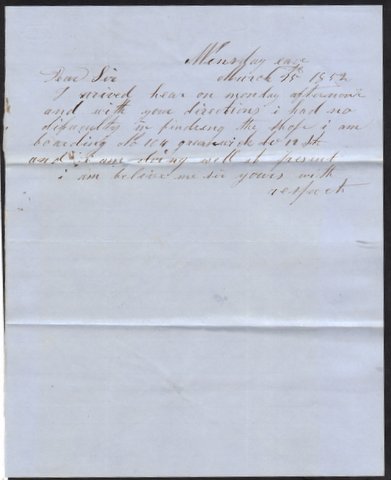 Dear Sir
March 15th 1852
I arived hear on monday afternoon
and with your directions i had no
dificulty in findeing the shope i am
boarding at No 104 greanwick
and i am doing well at present
i am beleive me sir yours with
respect